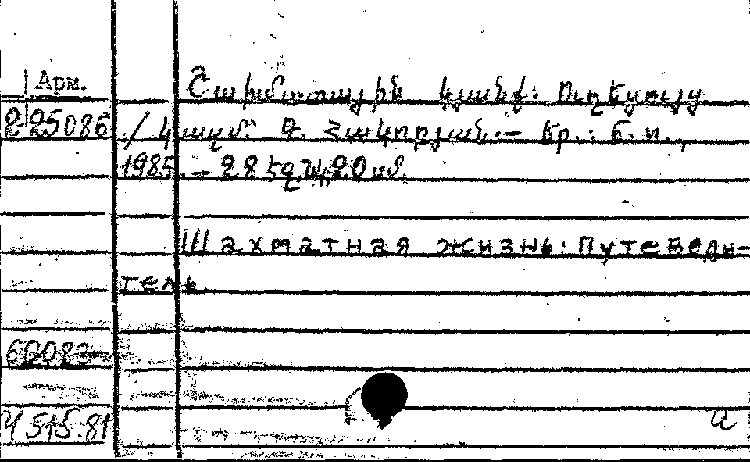 Арм.
Շախմատային կյանք: Ուղեցույց
225086
./ կազմ. Գ. Հակոբյան.— Եր.: Б. и.,
1985.— 28 էջ, 20 սմ.
Шахматная жизнь: Путеводи-
тель
60083
Ч 515.81